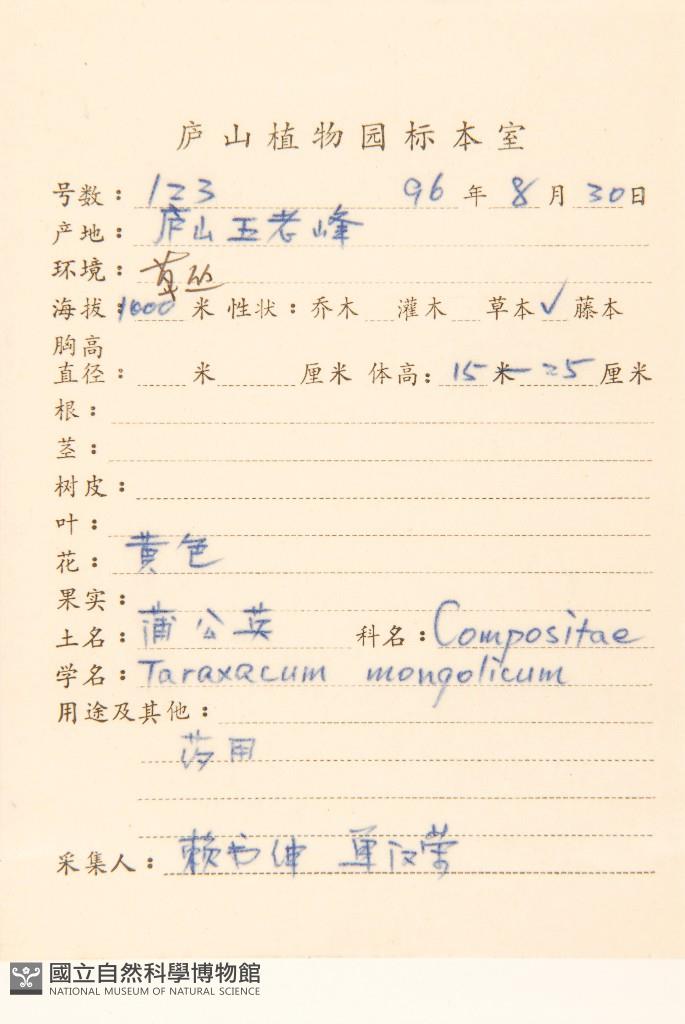 庐山植物园标本室
号数：123 96年8月30日
产地：庐山五老峰
环境：草丛
海拔：1000米 性状：乔木 灌木 草本✓ 藤本
胸高
直径： 米 厘米 体高：15米—25厘米
根：
茎：
树皮：
叶：
花：黄色
果实：
土名：蒲公英 科名：Compositae
学名：Taraxacum mongolicum
用途及其他：
药用
采集人：赖书绅 单汉荣
國立自然科學博物館
NATIONAL MUSEUM OF NATURAL SCIENCE